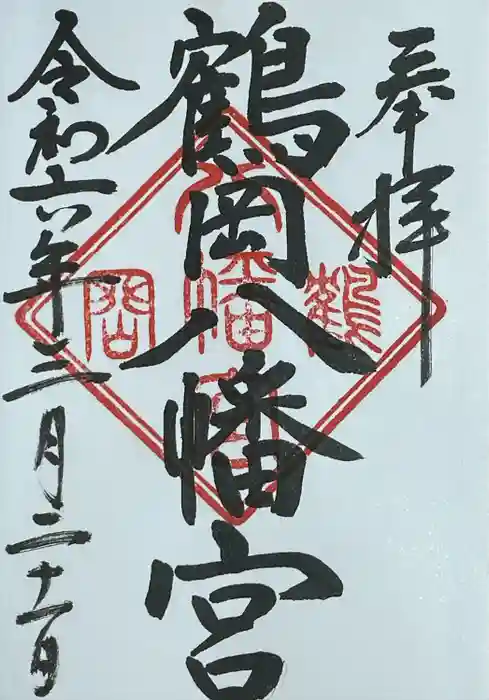 奉拝
鶴岡八幡宮
令和六年三月二十一日
鶴岡八幡宮